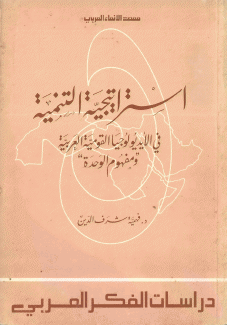 معهد الإنماء العربي
استراتيجية التنمية
في الأيديولوجيا القومية العربية
"ومفهوم الوحدة"
د. فهمية شرف الدين
دراسات الفكر العربي